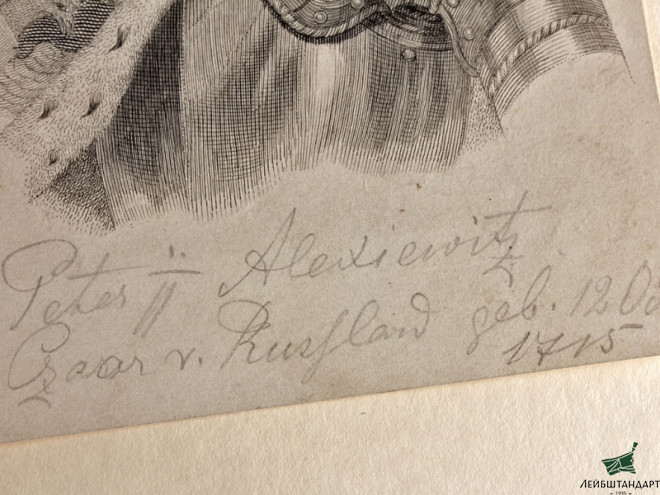 Peter II Alexiewitz
Czaar v. Russland geb. 12 Oc
1715
ЛЕЙБШТАНДАРТ
1998